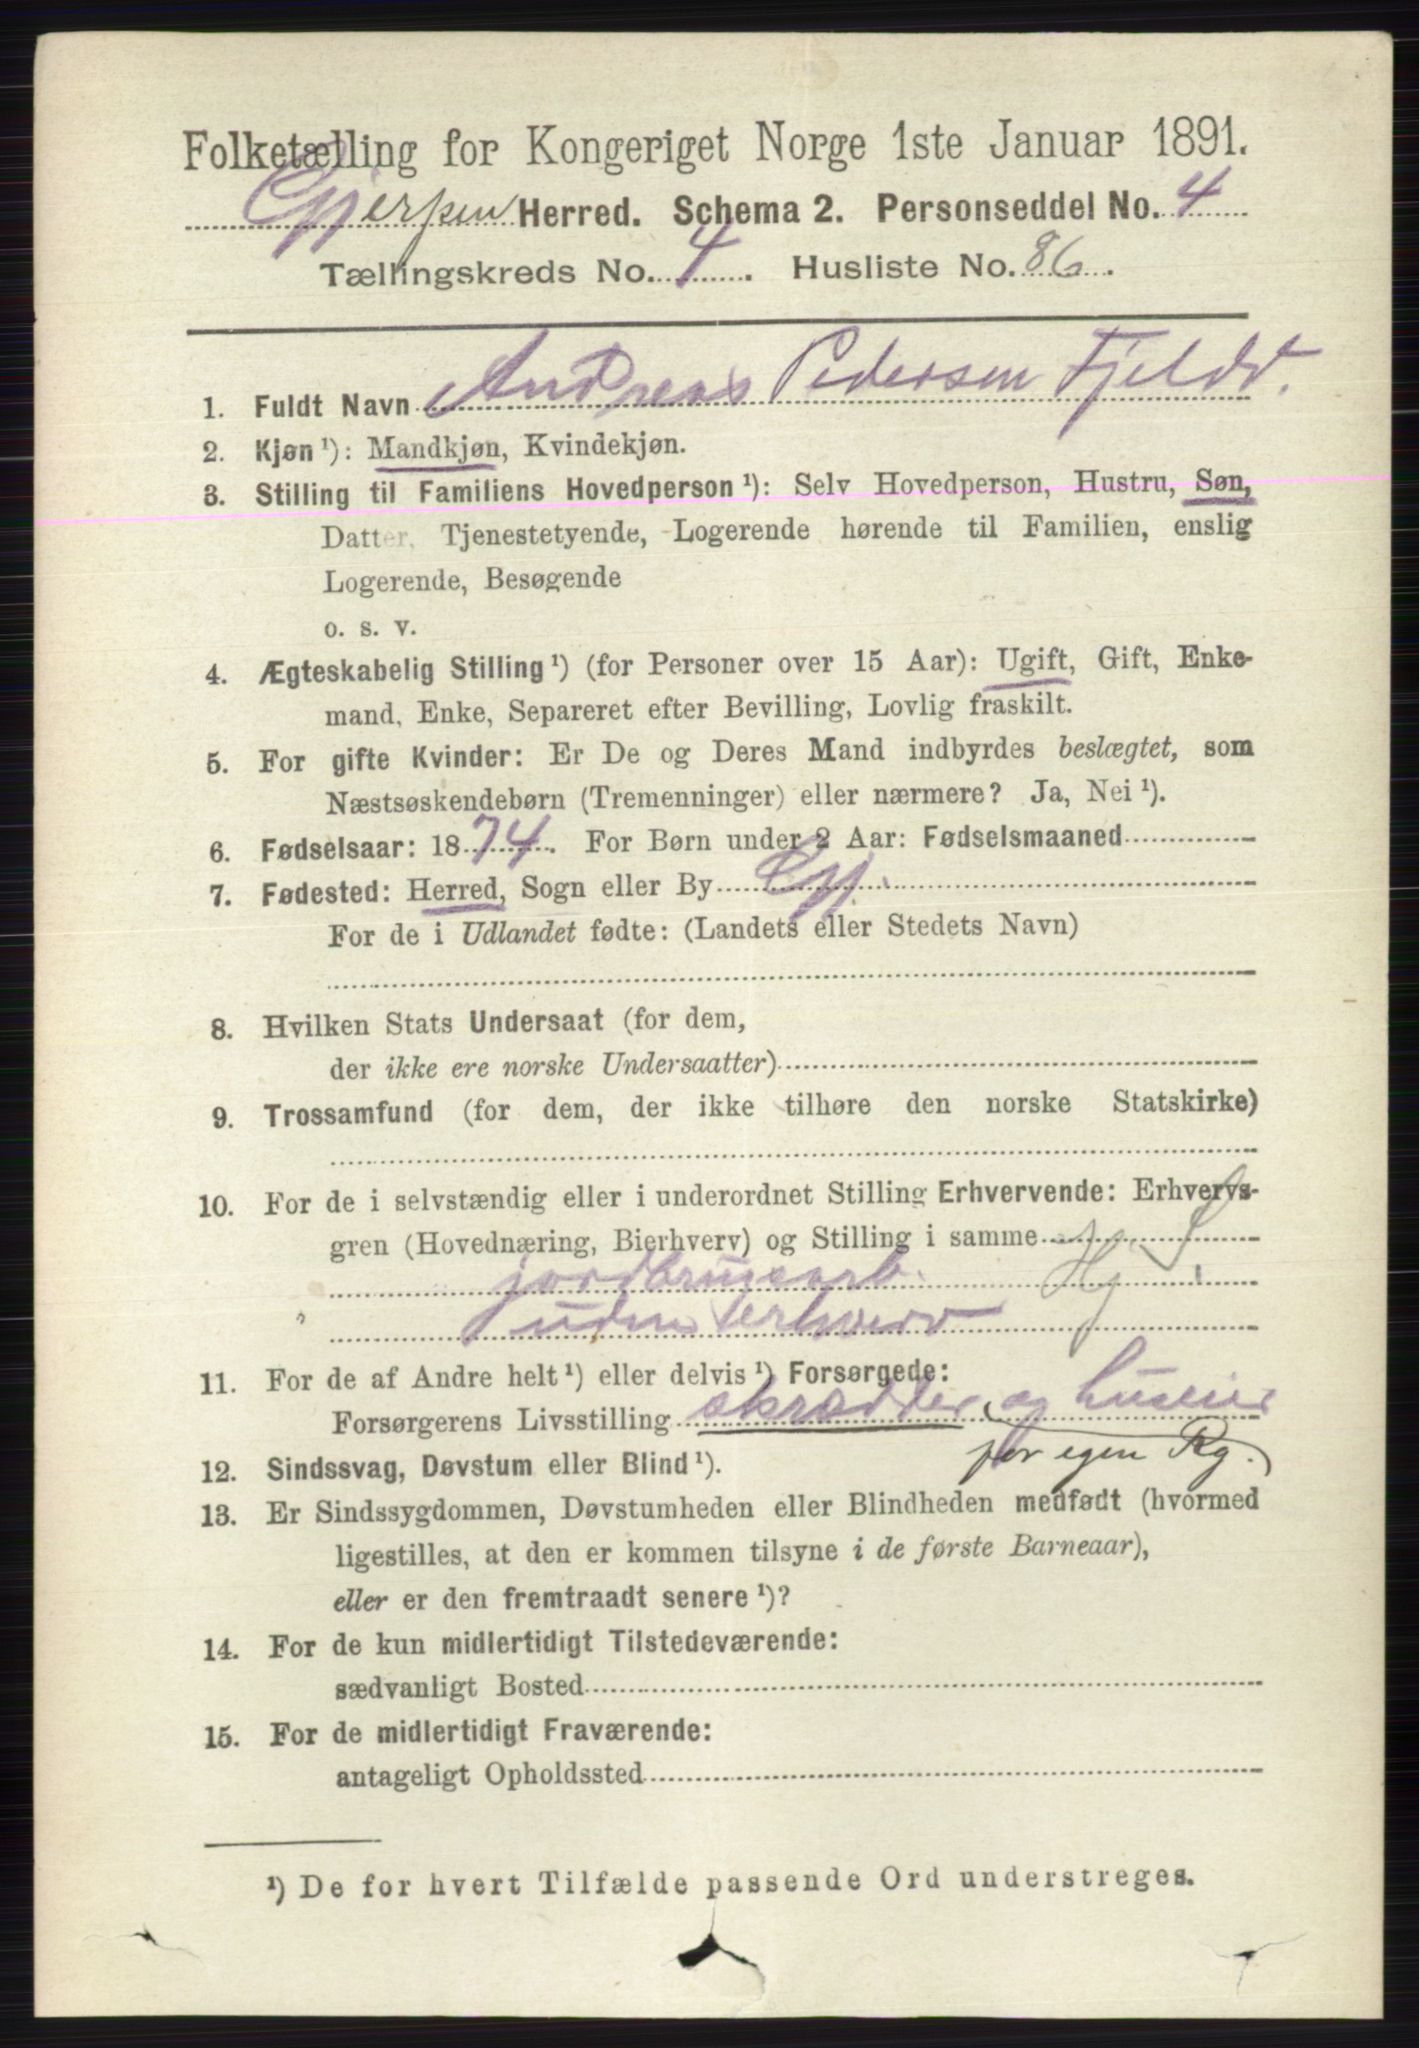 Folketælling for Kongeriget Norge 1ste Januar 1891.
Gjerpen Herred. Schema 2. Personseddel No. 4
Tællingskreds No. 4. Husliste No. 86.
1. Fuldt Navn Andreas Pedersen Fjeldv.
2. Kjøn ¹): Mandkjøn, Kvindekjøn.
3. Stilling til Familiens Hovedperson ¹): Selv Hovedperson, Hustru, Søn,
Datter, Tjenestetyende, Logerende hørende til Familien, enslig
Logerende, Besøgende
o. s. v.
4. Ægteskabelig Stilling ¹) (for Personer over 15 Aar): Ugift, Gift, Enke-
mand, Enke, Separeret efter Bevilling, Lovlig fraskilt.
5. For gifte Kvinder: Er De og Deres Mand indbyrdes beslægtet, som
Næstsøskendebørn (Tremenninger) eller nærmere? Ja, Nei ¹).
6. Fødselsaar: 1874. For Børn under 2 Aar: Fødselsmaaned
7. Fødested: Herred, Sogn eller By Gj.
For de i Udlandet fødte: (Landets eller Stedets Navn)
8. Hvilken Stats Undersaat (for dem,
der ikke ere norske Undersaatter)
9. Trossamfund (for dem, der ikke tilhøre den norske Statskirke)
10. For de i selvstændig eller i underordnet Stilling Erhvervende: Erhvervs-
gren (Hovednæring, Bierhverv) og Stilling i samme
jordbrugsarb.
uden erhverv
11. For de af Andre helt ¹) eller delvis ¹) Forsørgede:
Forsørgerens Livsstilling skrædder og huseier
for egen Rg.
12. Sindssvag, Døvstum eller Blind ¹).
13. Er Sindssygdommen, Døvstumheden eller Blindheden medfødt (hvormed
ligestilles, at den er kommen tilsyne i de første Barneaar),
eller er den fremtraadt senere ¹)?
14. For de kun midlertidigt Tilstedeværende:
sædvanligt Bosted
15. For de midlertidigt Fraværende:
antageligt Opholdssted
¹) De for hvert Tilfælde passende Ord understreges.